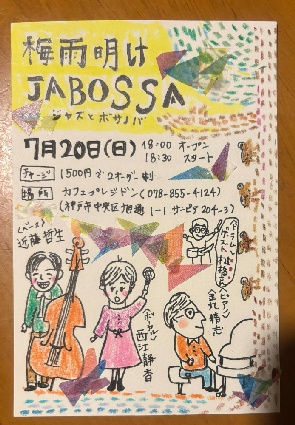 梅雨明け
JABOSSA
ジャズとボサノバ
7月20日(日) 18:00 オープン
18:30 スタート
チャージ 1500円 2オーダー制
場所 カフェ
(078-855-4124)
(神戸市中央区旭通 1-1 サンピア 204-3)
(ベース)
近藤哲生
ボーカル
西江静香
(ドラム)
(ピアノ)